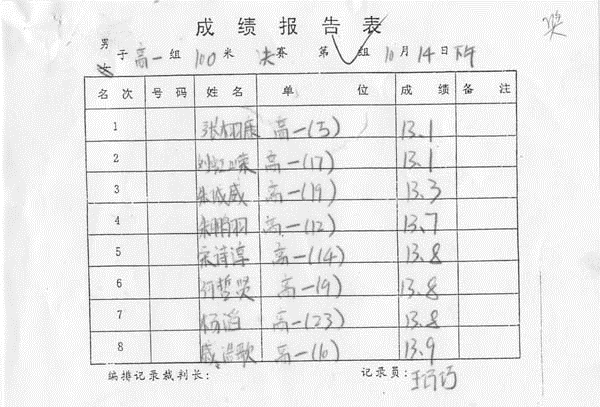 成绩报告表
奖
男子高一组 100米 决赛 第 组 10月14日 下午
名次 号码 姓名 单位 成绩 备注
1 张栩康 高一(5) 13.1
2 高一(17) 13.1
3 朱成威 高一(19) 13.3
4 朱鹏羽 高一(12) 13.7
5 宋诗淳 高一(14) 13.8
6 何哲贤 高一(9) 13.8
7 杨滔 高一(23) 13.8
8 高一(16) 13.9
编排记录裁判长： 记录员：王巧巧